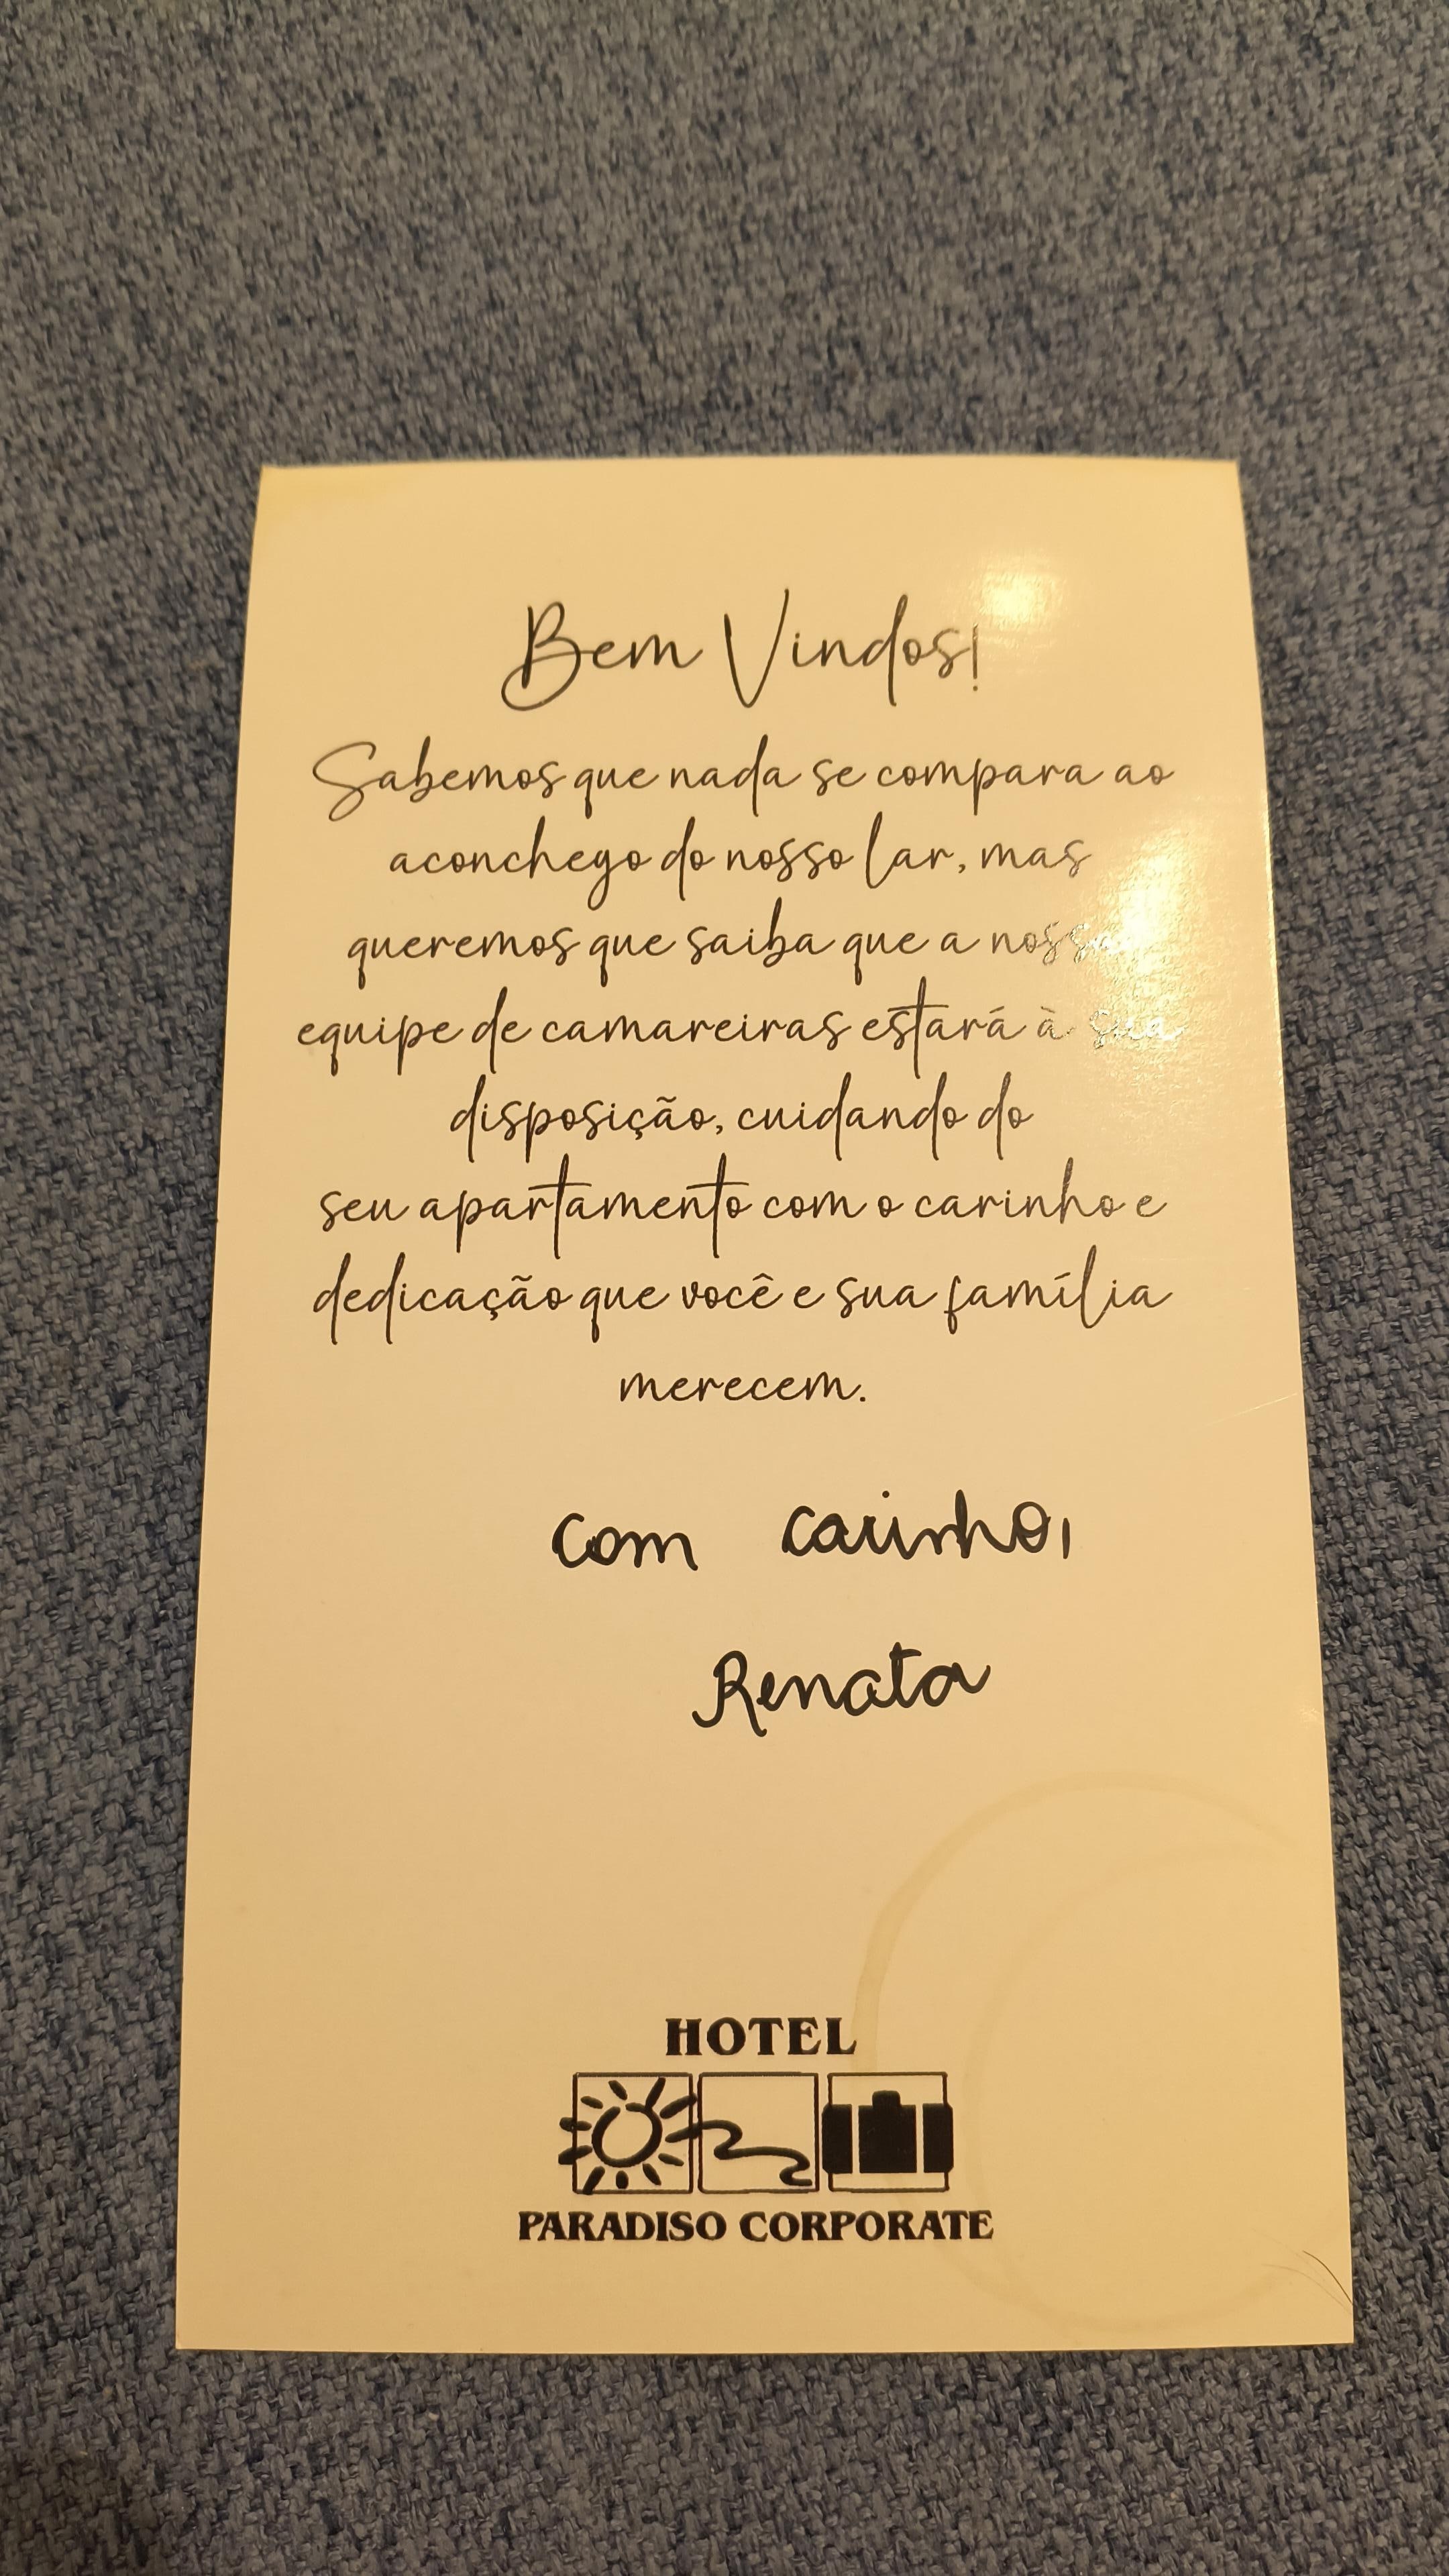 Bem Vindos!
Sabemos que nada se compara ao
aconchego do nosso lar, mas
queremos que saiba que a nossa
equipe de camareiras estará à sua
disposição, cuidando do
seu apartamento com o carinho e
dedicação que você e sua família
merecem.
Com carinho,
Renata
HOTEL
PARADISO CORPORATE